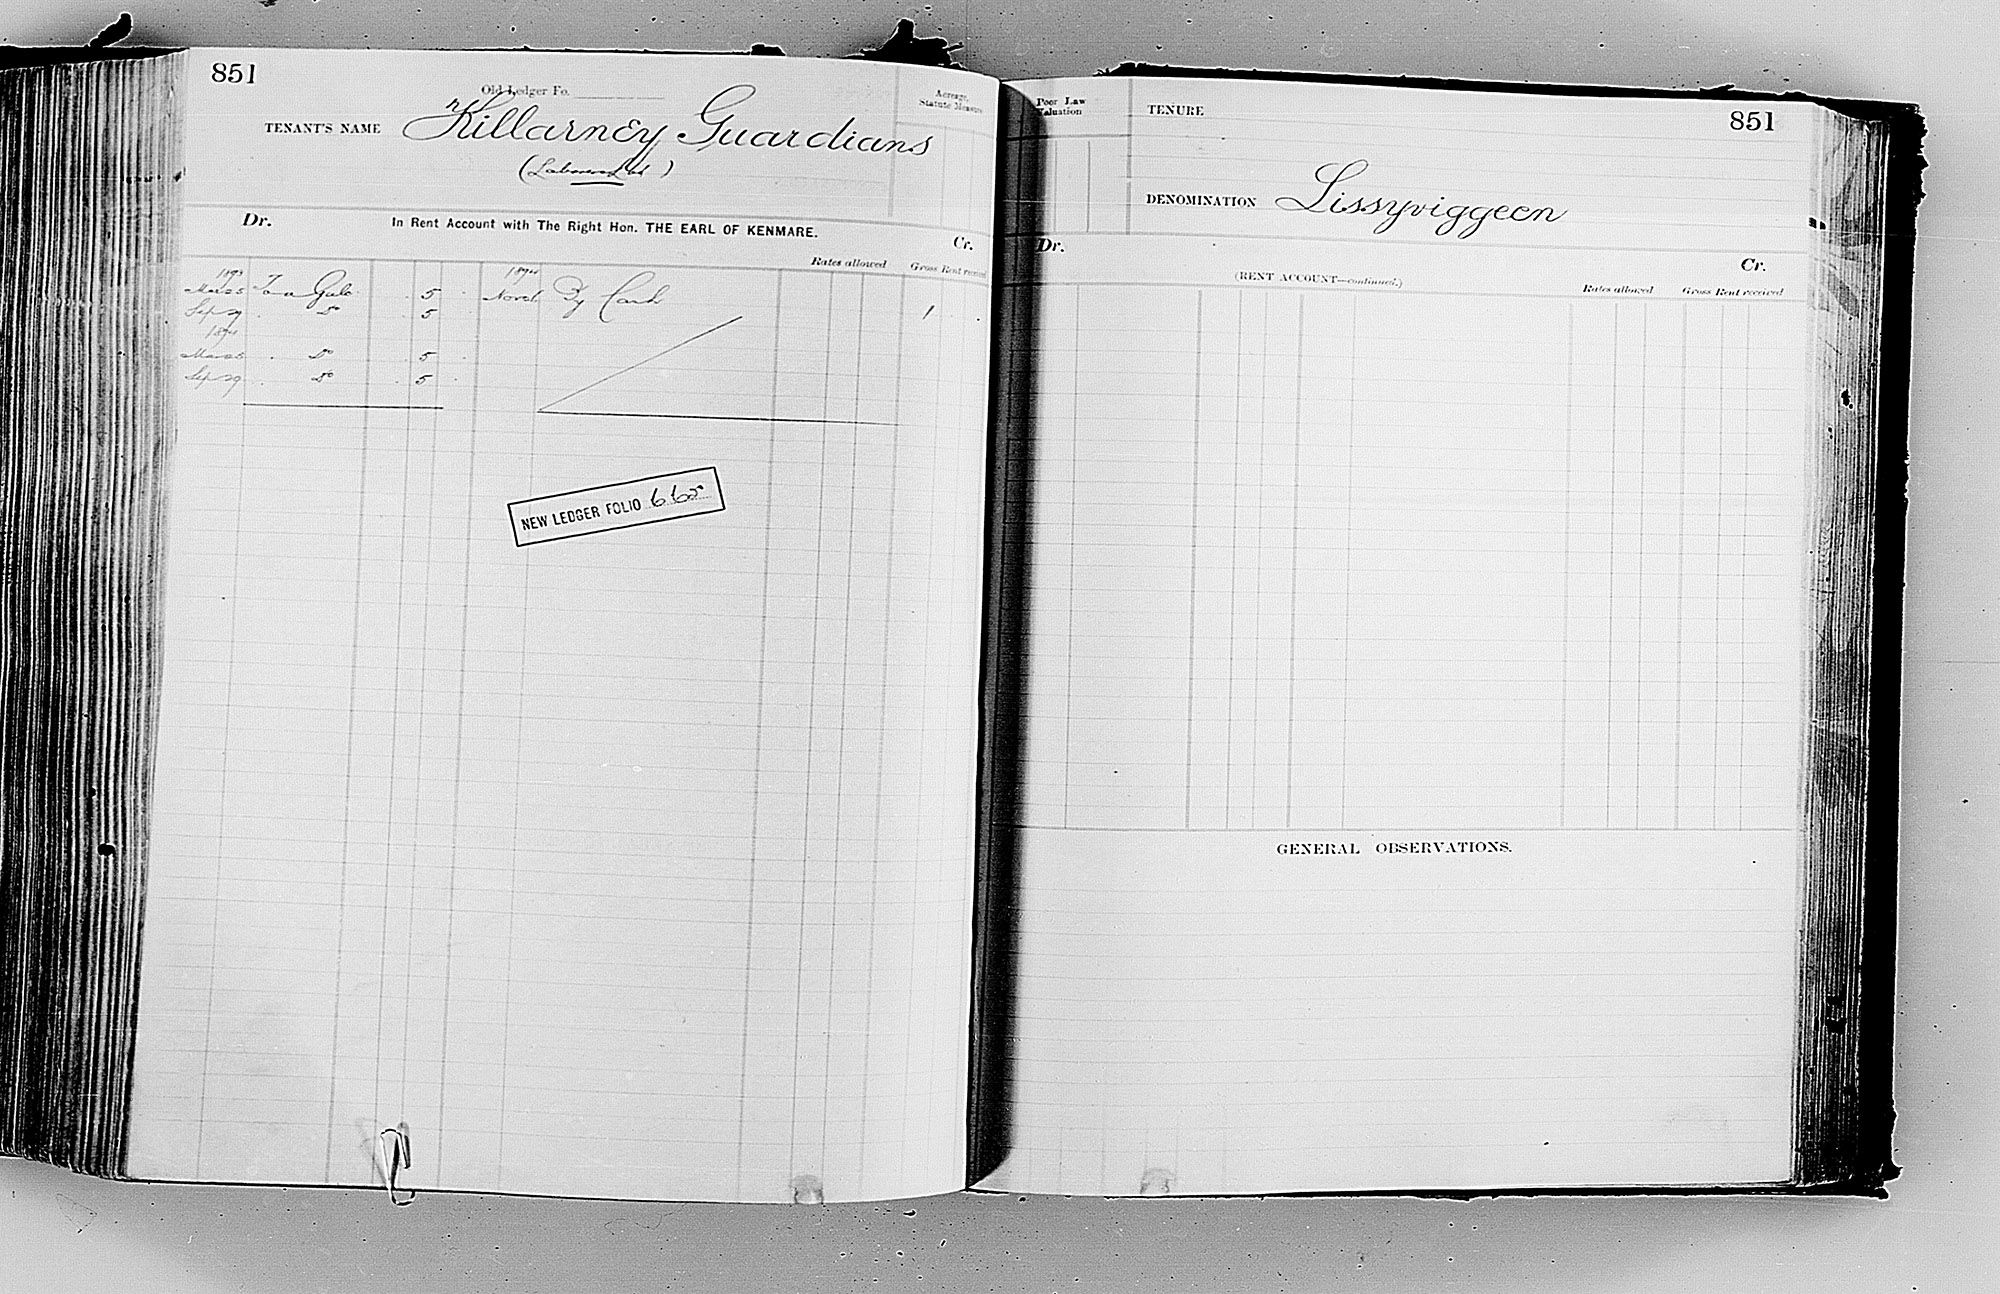 851
Old Ledger Fo.
TENANT'S NAME Killarney Guardians
Acreage, Statute Measure
Dr. In Rent Account with The Right Hon. THE EARL OF KENMARE. Cr.
Rates allowed Gross Rent received
1893 189
Gale 5 By Cash 1
Sep 29 Do 5
189
Do 5
Sep 29 Do 5
NEW LEDGER FOLIO
Poor Law Valuation
TENURE
851
DENOMINATION Lissyviggeen
Dr. Cr.
(RENT ACCOUNT—continued.)
Rates allowed Gross Rent received
GENERAL OBSERVATIONS.